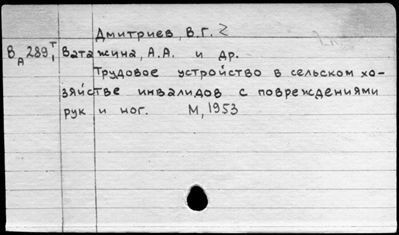 Дмитриев, В.Г. 2
В А 289, т Ватажина, А.А. и др.
Трудовое устройство в сельском хо-
зяйстве инвалидов с повреждениями
рук и ног. М, 1953